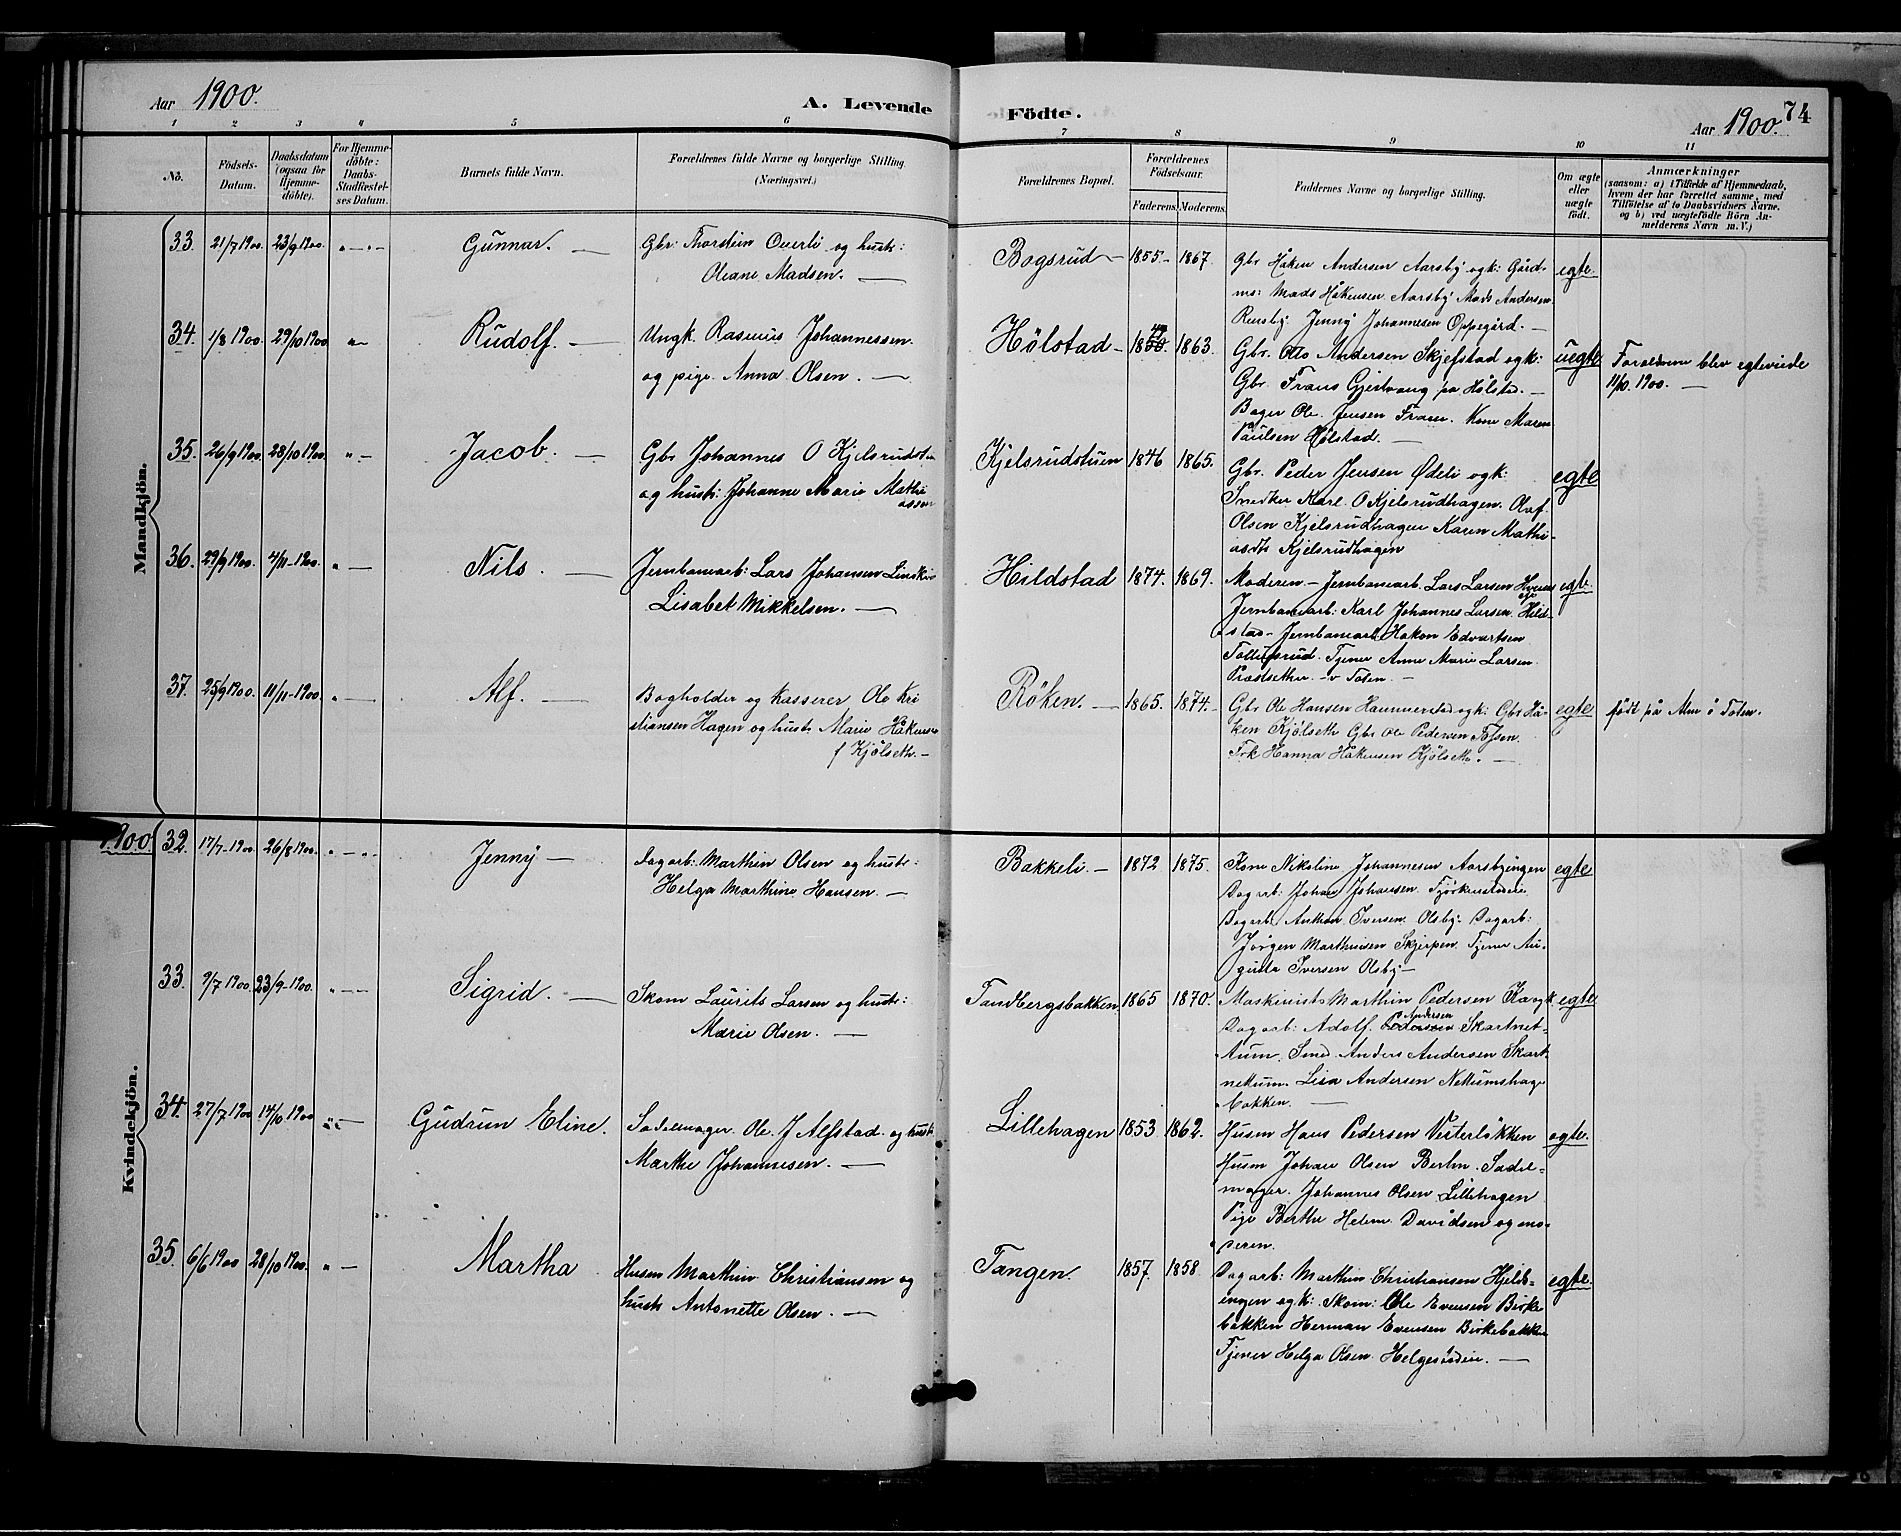 Aar 1900.
A. Levende
Födte.
Aar 1900.
74
1 2 3 4 5 6 7 8 9 10 11
No.
Födsels-Datum.
Daabsdatum (ogsaa for Hjemme-döbte).
For Hjemme-döbte: Daabs-Stadfæstel-ses Datum.
Barnets fulde Navn.
Forældrenes fulde Navne og borgerlige Stilling.
(Næringsvei.)
Forældrenes Bopæl.
Forældrenes Födselsaar.
Faderens. Moderens.
Faddernes Navne og borgerlige Stilling.
Om ægte eller uægte födt.
Anmærkninger
(saasom: a) i Tilfælde af Hjemmedaab,
hvem der har forrettet samme, med
Tilföielse af to Daabsvidners Navne.
og b) ved uægtefödte Börn An-
melderens Navn m. V.)
Mandkjön.
33. 21/7 1900. 23/9 1900. Gunnar. —
Gbr. Thorstein Overli og hustr:
Oleane Madsen. —
Bogsrud — 1855 - 1867.
Gbr Håken Andersen Aarsby ogk: Gård-
ms: Mads Håkensen Aarsby Mads Andersen
Rensby Jenny Johannesen Oppegård. —
egte.
34. 1/8 1900. 29/10 1900 Rudolf. —
Ungk. Rasmus Johannessen.
og pige. Anna Olsen. —
Hölstad — 1849 1863.
Gbr. Olo Andersen Skjefstad ogk:
Gbr. Frans Gjestvang pa Hölstad. —
Bager Ole. Jensen Kone Maren
Paulsen Hölstad. —
uegte
Forældrene blev egteviede
11/10. 1900. —
35. 26/9 1900. 28/10 1900. Jacob. —
Gbr Johannes O Kjelsrudstn
og hustr: Johanne Marie Mathi
assen
Kjelsrudstuen 1846 1865.
Gbr. Peder Jensen Ødeli ogk:
Snedker Karl. O Kjelsrudhagen. Olaf.
Olsen Kjelsrudhagen Karen Mathi-
asdtr Kjelsrudhagen
egte
36. 29/9 1900. 4/11 - 1900. Nils. —
Jernbanearb: Lars Johansen
Lisabet Mikkelsen. —
Hildstad 1874. 1869.
Moderen — Jernbanearb. Lars Larsen
Jernbanearb: Karl Johannes Larsen. Hild-
stad — Jernbanearb Hakon Edvartsen
Tollefsrud. Tjener Anne Marie Larsen
v Toten. —
egte.
37. 25/9 1900. 11/11 - 1900. Alf. —
Bogholder og Kasserer Ole Kri
stiansen Hagen og hustr Marie Håkensen
f Kjölseth. —
Röken. — 1865. 1874. —
Gbr Ole Hansen Hammerstad ogk: Gbr Hå-
ken Kjölseth Gbr Ole Pedersen
Frk Hanna Håkensen Kjölseth. —
egte
födt på i Toten.
1900
Kvindekjön.
32. 17/7 - 1900. 26/8 1900. Jenny —
Dagarb: Marthin Olsen og hustr:
Helga Marthine Hansen. —
Bakkeli. — 1872 1875.
Kone Nikoline Johannesen Aarsbyengen
Dagarb: Johan Johansen
Dagarb. Anthon Iversen. Olsby. Dagarb:
Jörgen Marthinsen Skjerpen. Tjener Au-
gusta Iversen Olsby —
egte
33. 9/7 1900. 23/9 - 1900. Sigrid. —
Skom Laurits Larsen og hustr:
Marie Olsen. —
Tandbergsbakken. 1865 1870.
Maskinist Marthin Pedersen
Dagarb: Adolf. Pedersen Andersen Skartnet-
tum. Smed. Anders Andersen Skart-
nettum. Lisa Andersen Nettumshage
bakken. —
egte
34. 27/7 1900 14/10 1900 Gudrun Eline.
Sadelmager. Ole. J Alfstad. og hustr
Marthe Johannesen. —
Lillehagen 1853 1862.
Husm Hans Pedersen Vesterlökken
Husm Johan Olsen Berlin. Sadel-
mager. Johannes Olsen Lillehagen
Pige Berthe Helene Davidsen og mo-
deren.
egte.
35. 6/6 1900 28/10 1900. Martha
Husm Marthin Christiansen og
hustr Antonette Olsen. —
Tangen. 1857. 1858
Dagarb: Marthin Christiansen Hjelds-
engen ogk: Skom: Ole Evensen Birke
bakken Herman Evensen Birkebakken
Tjener Helga Olsen. —
egte.